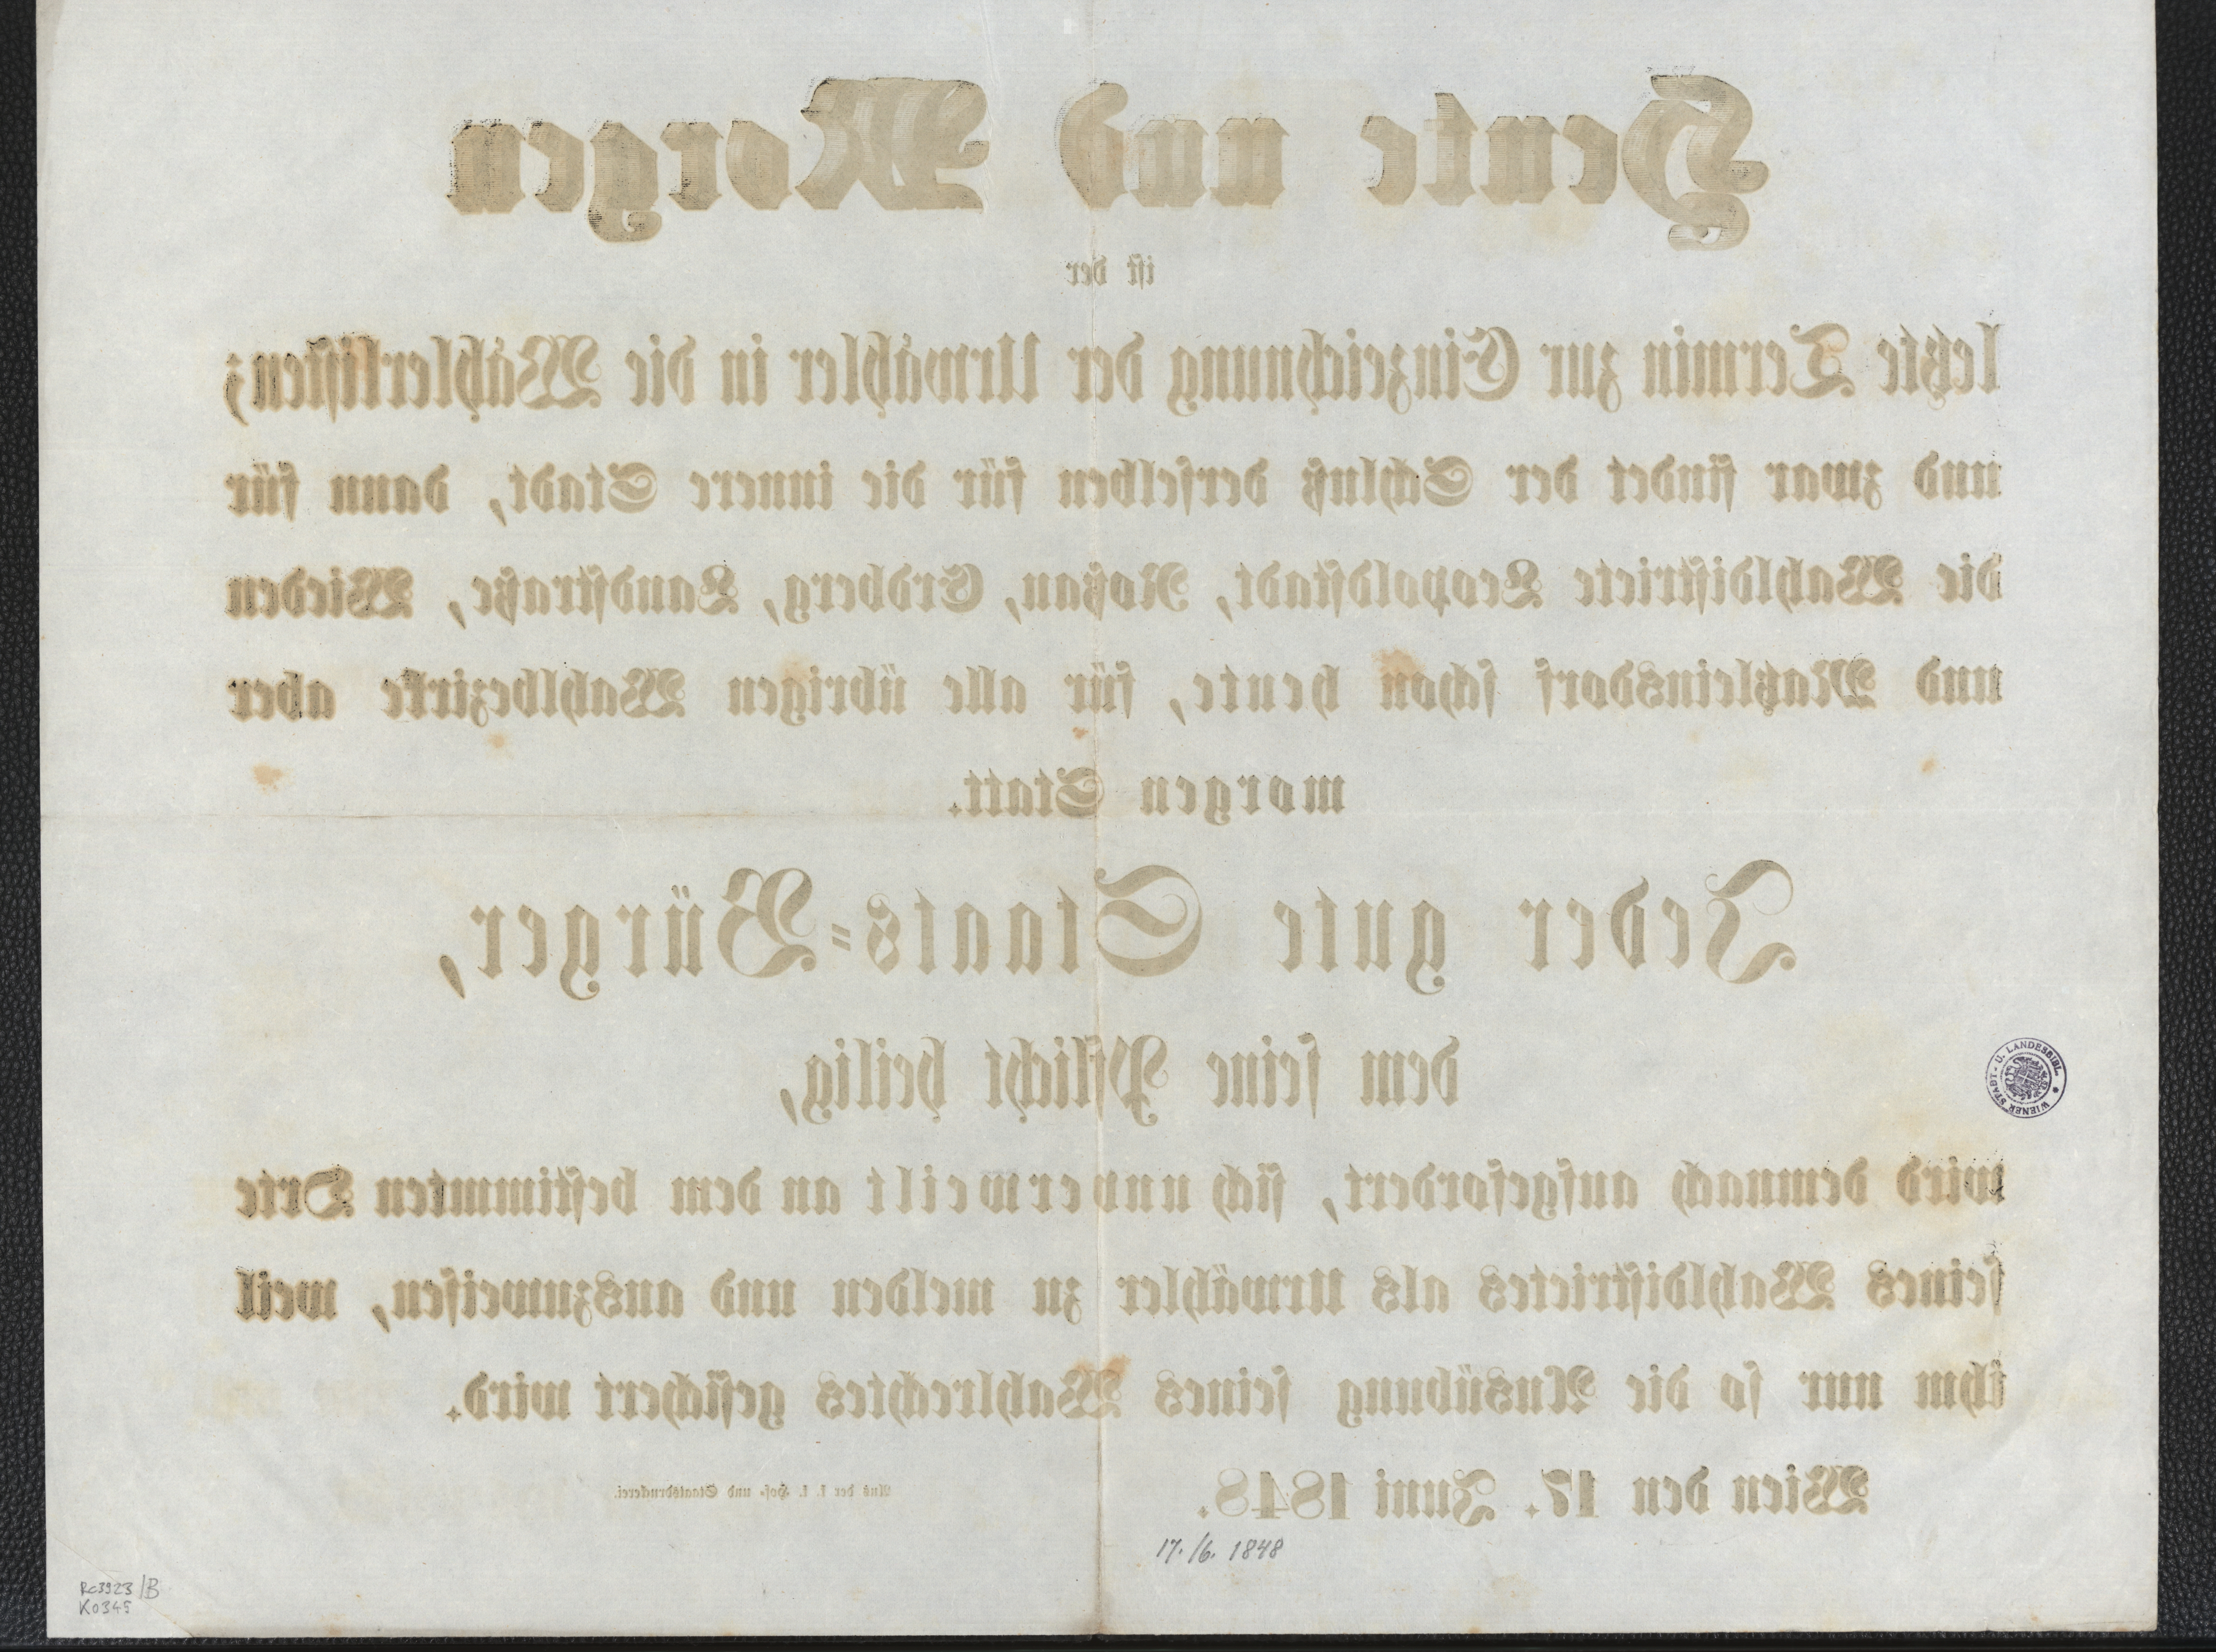 Heute und Morgen
ist der
letzte Termin zur Einzeichnung der Urwähler in die Wählerlisten;
und zwar findet der Schluß derselben für die innere Stadt, dann für
die Wahldistricte Leopoldstadt, Roßau, Erdberg, Landstraße, Wieden
und Matzleinsdorf schon heute, für alle übrigen Wahlbezirke aber
morgen Statt.
Jeder gute Staats-Bürger,
dem seine Pflicht heilig,
wird demnach aufgefordert, sich unverweilt an dem bestimmten Orte
seines Wahldistrictes als Urwähler zu melden und auszuweisen, weil
ihm nur so die Ausübung seines Wahlrechtes gesichert wird.
Wien den 17. Juni 1848.
Aus der k. k. Hof- und Staatsdruckerei.
17./6. 1848
WIENER STADT- U. LANDESBIBL.
Rc3923/B
K0345